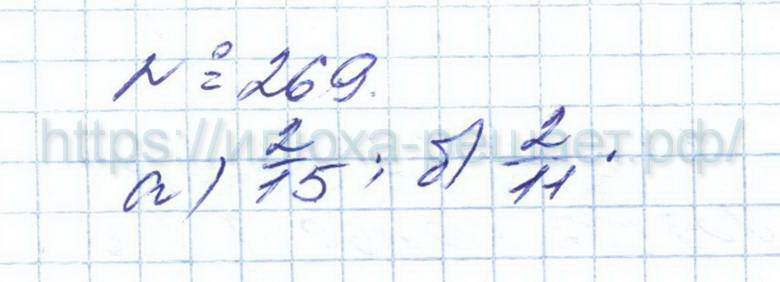 № 269.
https://ипоха-решает.рф/
а) 2/15; б) 2/11.